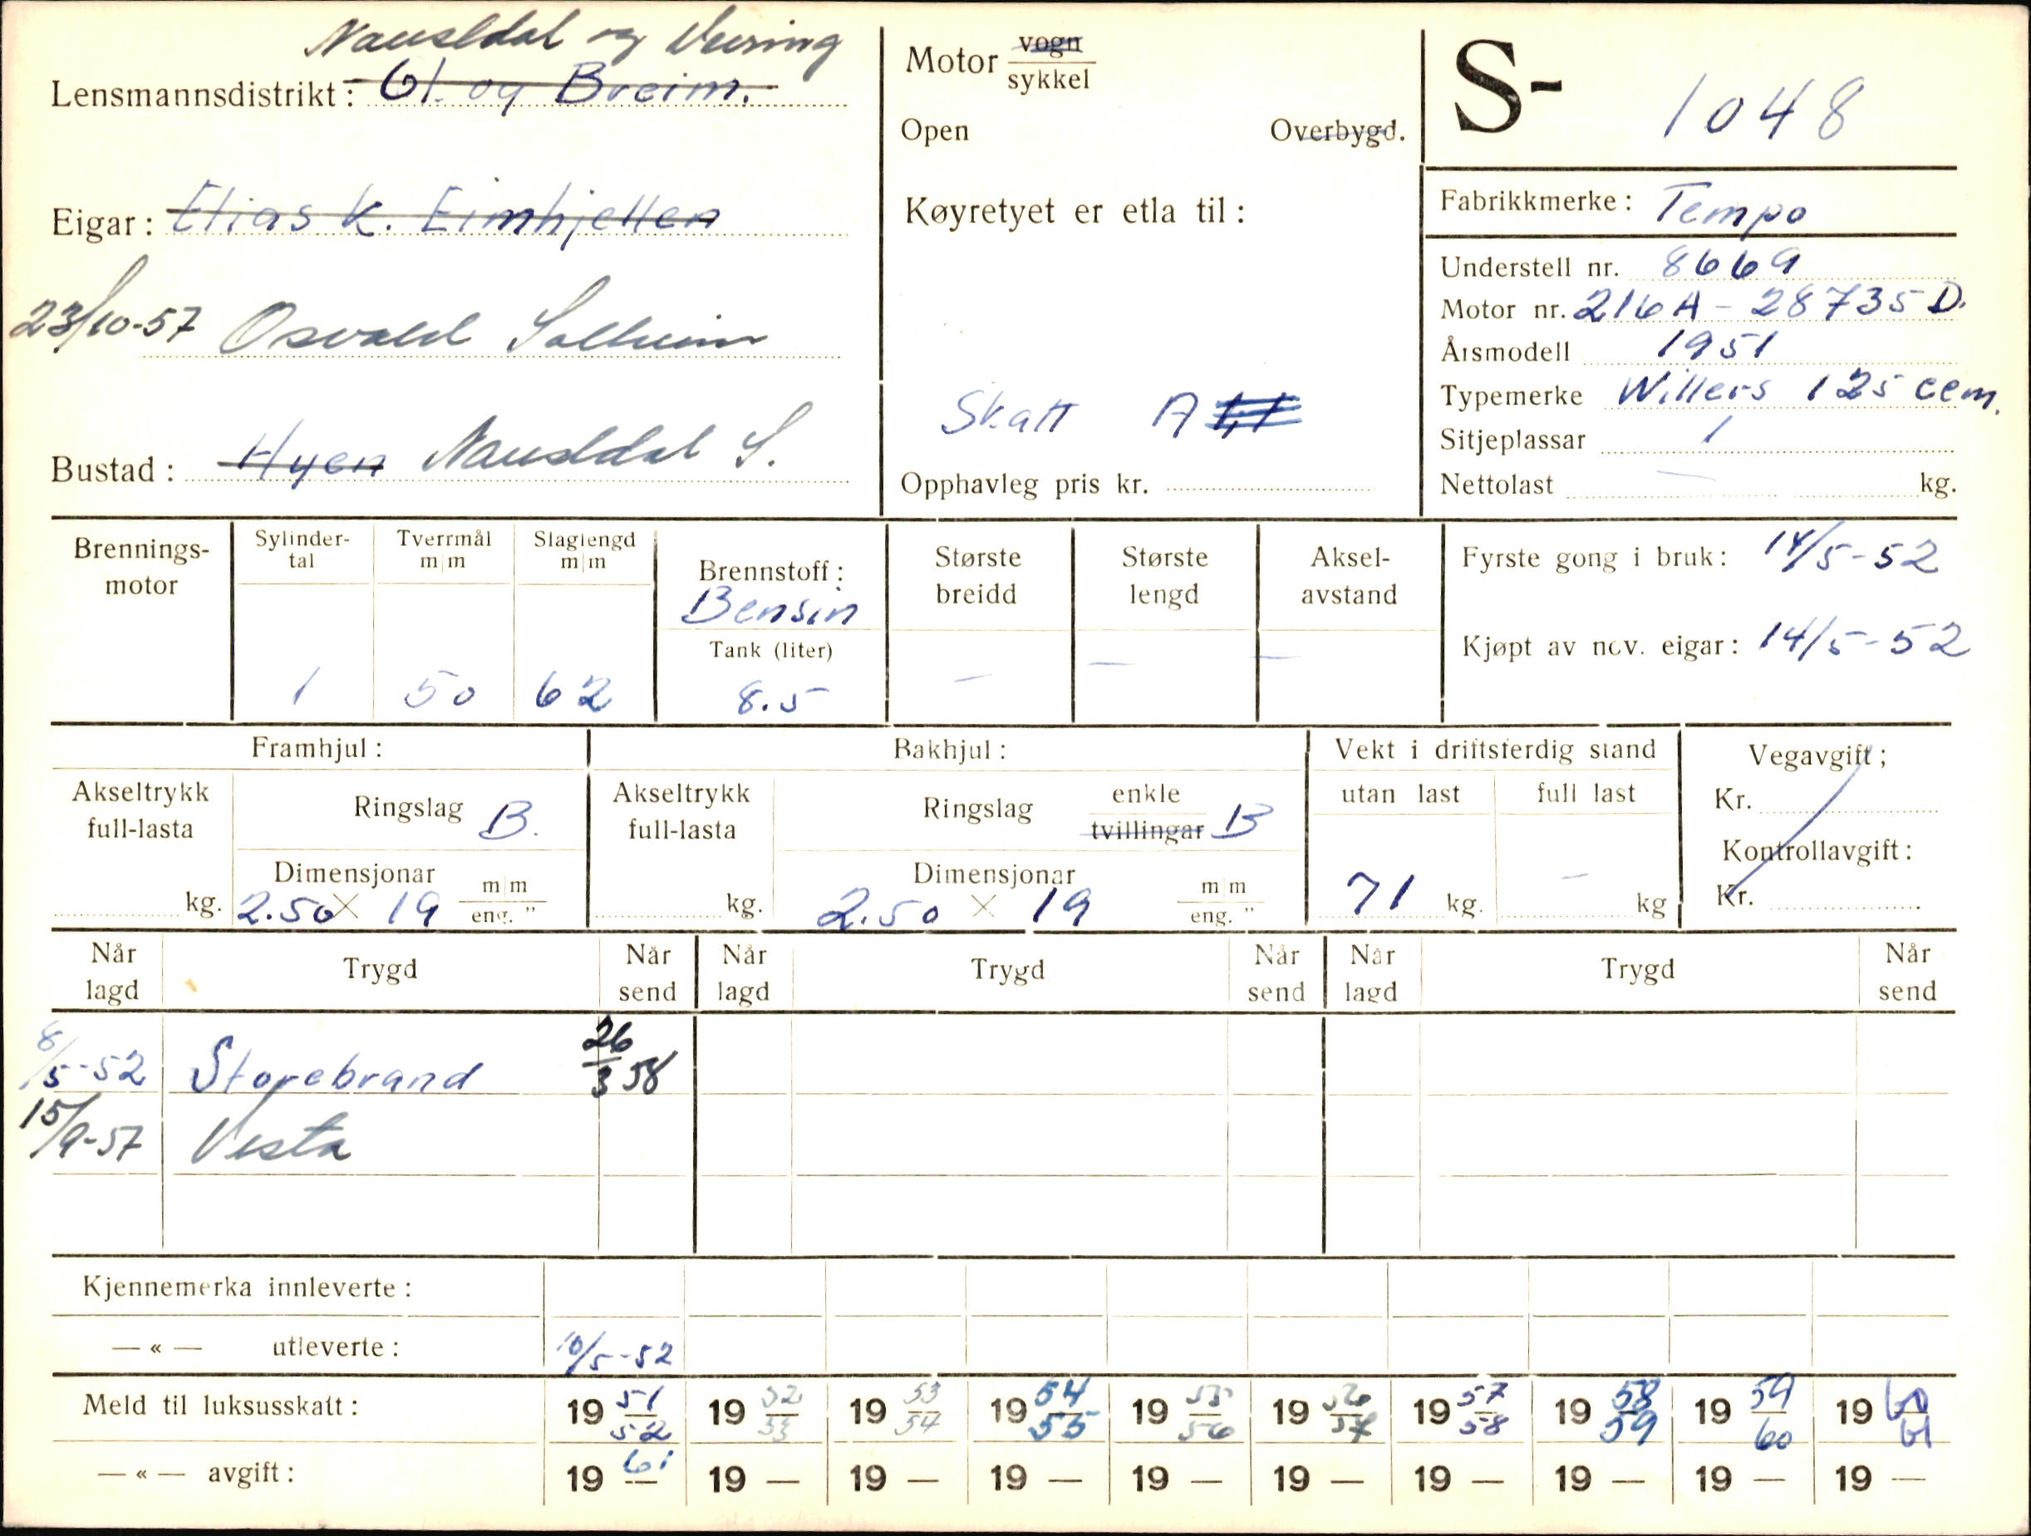 Naustdal og Vevring
Lensmannsdistrikt: Gl. og Breim.
Eigar: Elias K. Eimhjellen
23/10-57 Osvald Solheim
Bustad: Hyen Naustdal S.
Motor vogn
sykkel
Open Overbygd.
Køyretyet er etla til:
Skatt A
Opphavleg pris kr.
S- 1048
Fabrikkmerke: Tempo
Understell nr. 8669
Motor nr. 216A - 28735 D.
Årsmodell 1951
Typemerke Willers 125 ccm.
Sitjeplassar 1
Nettolast — kg.
Brennings-
motor
Sylinder-
tal
1
Tverrmål
m|m
50
Slaglengd
m|m
62
Brennstoff:
Bensin
Tank (liter)
8.5
Største
breidd
—
Største
lengd
—
Aksel-
avstand
—
Fyrste gong i bruk: 14/5-52
Kjøpt av nov. eigar: 14/5-52
Framhjul:
Akseltrykk
full-lasta
kg.
Ringslag B.
Dimensjonar m|m
2.50 x 19 eng. "
Bakhjul:
Akseltrykk
full-lasta
kg.
Ringslag enkle
tvillingar B
Dimensjonar m|m
2.50 x 19 eng. "
Vekt i driftsferdig stand
utan last full last
71 kg. — kg
Vegavgift;
Kr.
Kontrollavgift:
Kr.
Når
lagd
Trygd
Når
send
Når
lagd
Trygd
Når
send
Når
lagd
Trygd
Når
send
8/5-52 Storebrand 26/3 58
15/9-57 Vesta
Kjennemerka innleverte:
— « — utleverte: 10/5-52
Meld til luksusskatt: 19 51/52 19 52/53 19 53/54 19 54/55 19 55/56 19 56/57 19 57/58 19 58/59 19 59/60 19 60/61
— « — avgift: 19 61 — 19 — 19 — 19 — 19 — 19 — 19 — 19 — 19 — 19 —